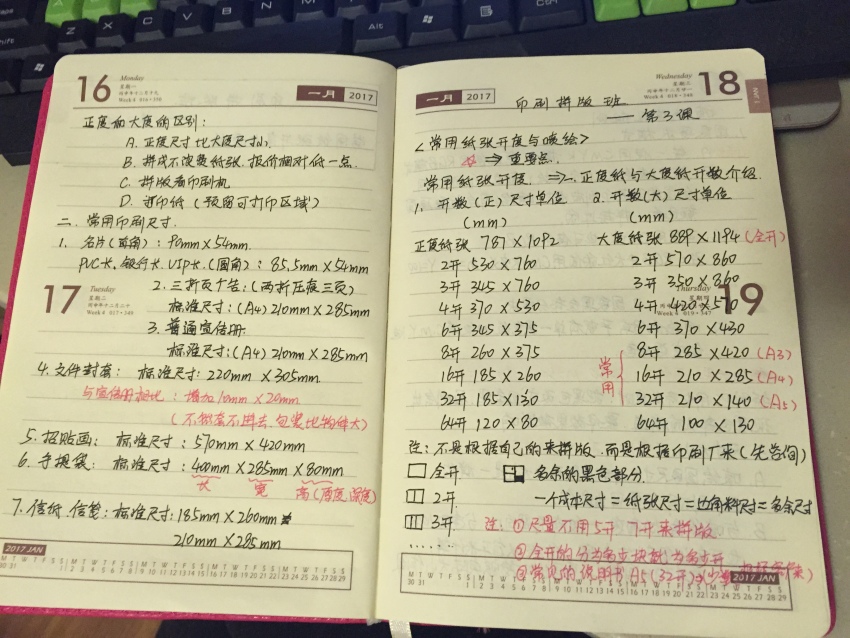 16
Monday
星期一
一月 2017
正度和大度的区别：
A. 正度尺寸比大度尺寸小.
B. 拼成不浪费纸张. 报价相对低一点.
C. 拼版看印刷机
D. 打印纸（预留可打印区域）
二、常用印刷尺寸.
1. 名片(直角)：90mm×54mm.
PVC卡. 银行卡. VIP卡.(圆角)：85.5mm×54mm
17
Tuesday
星期二
2. 三折页广告:(两折压痕三页)
标准尺寸:(A4)210mm×285mm
3. 普通宣传册
标准尺寸:(A4)210mm×285mm
4. 文件封套: 标准尺寸: 220mm×305mm
与宣传册相比: 增加10mm×20mm
(不然套不进去.包装比物体大)
5. 招贴画: 标准尺寸: 570mm×420mm
6. 手提袋: 标准尺寸: 400mm×285mm×80mm
长 宽 高(厚度.深度)
7. 信纸. 信笺: 标准尺寸: 185mm×260mm
210mm×285mm
2017 JAN
M T W T F S S M T W T F S S M T W T F S S M T W T F S S M T W T F S S
30 31 1 2 3 4 5 6 7 8 9 10 11 12 13 14 15 16 17 18 19 20 21 22 23 24 25 26 27 28 29
一月 2017
Wednesday
星期三
18
1 JAN
印刷拼版班
——第3课
<常用纸张开度与喷绘>
⇒重要点.
常用纸张开度. ⇒一. 正度纸与大度纸开数介绍.
1. 开数(正)尺寸单位 2. 开数(大)尺寸单位
(mm) (mm)
正度纸张 787×1092 大度纸张 889×1194(全开)
2开 530×760 2开 570×860
3开 345×760 3开 350×860
Thursday
19
4开 370×530 4开 420×570
6开 345×375 6开 370×430
8开 260×375 8开 285×420 (A3)
常用
16开 185×260 16开 210×285 (A4)
32开 185×130 32开 210×140 (A5)
64开 120×80 64开 100×130
注: 不是根据自己的来拼版. 而是根据印刷厂来(先咨询)
全开. 多余的黑色部分.
2开. 一个成本尺寸=纸张尺寸=边角料尺寸=多余尺寸
3开 注: ①尺量不用5开 7开来拼版.
.... ②全开的分为多少块就为多少开
③常见的说明书A5(32开)
2017 JAN
M T W T F S S M T W T F S S M T W T F S S M T W T F S S M T W T F S S
30 31 1 2 3 4 5 6 7 8 9 10 11 12 13 14 15 16 17 18 19 20 21 22 23 24 25 26 27 28 29